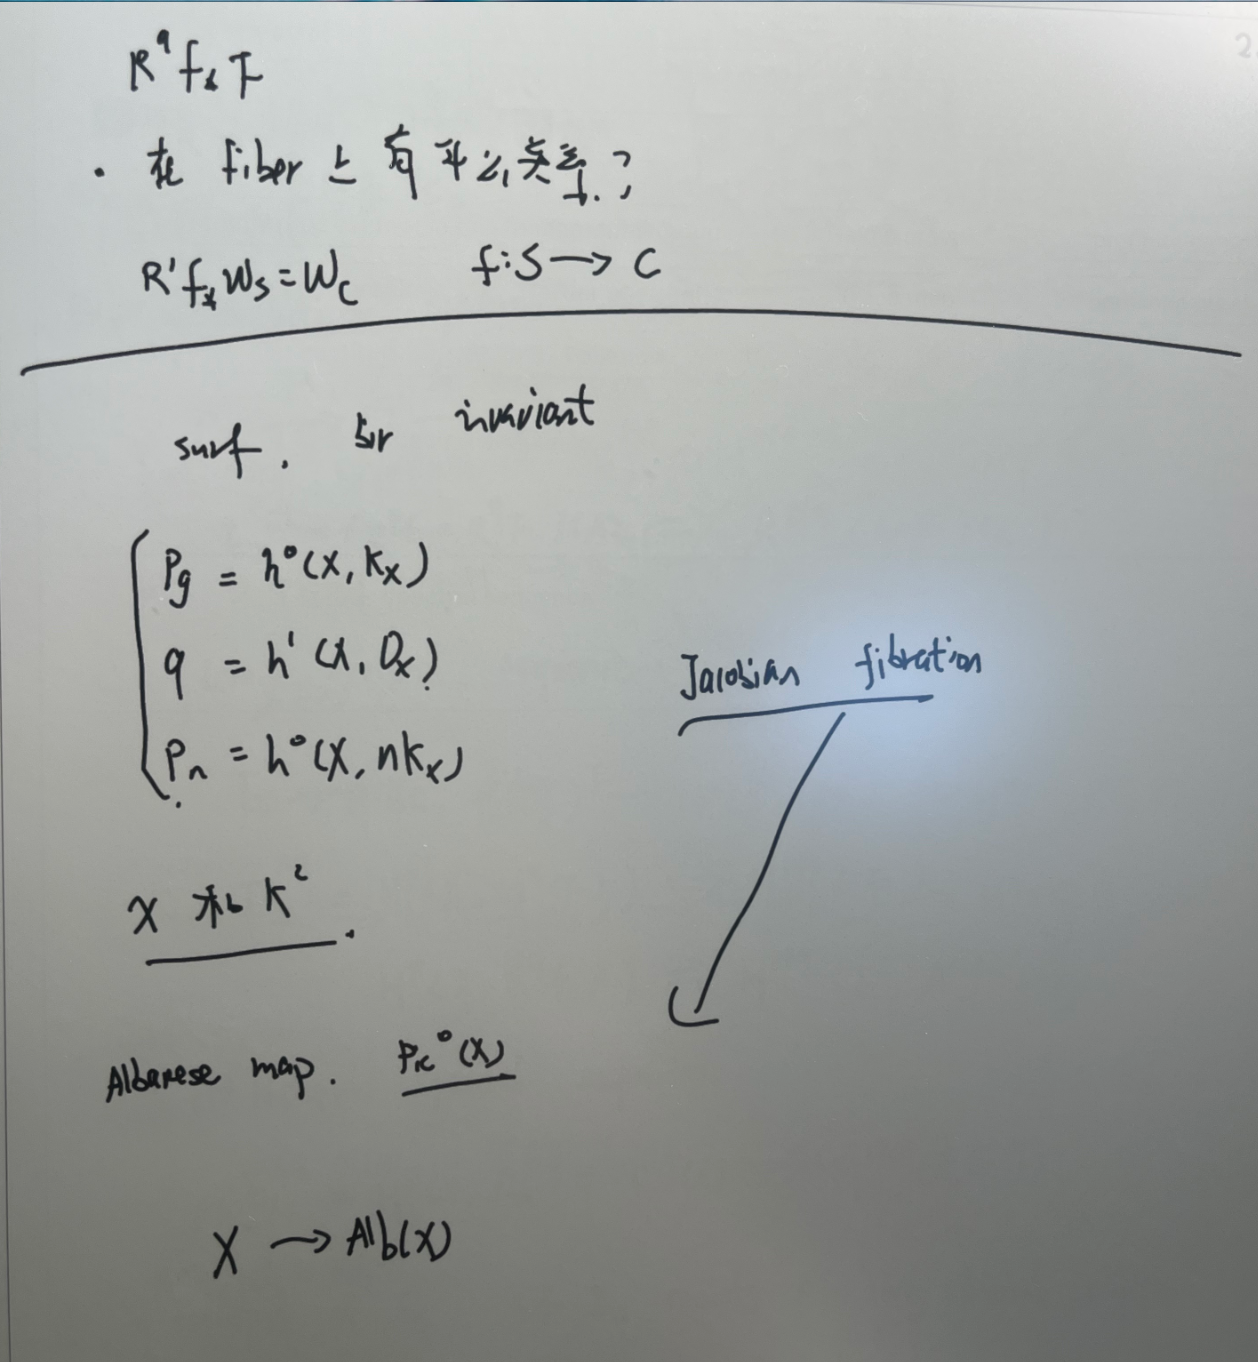 R^q f_* F
· 在 fiber 上 有什么关系?
R' f_* W_S = W_C f: S → C
surf. bir invariant
P_g = h^0(X, K_X)
q = h^1(X, O_X)
P_n = h^0(X, nK_X)
Jacobian fibration
χ 和 K^2.
Albanese map. Pic^0(X)
X → Alb(X)
2